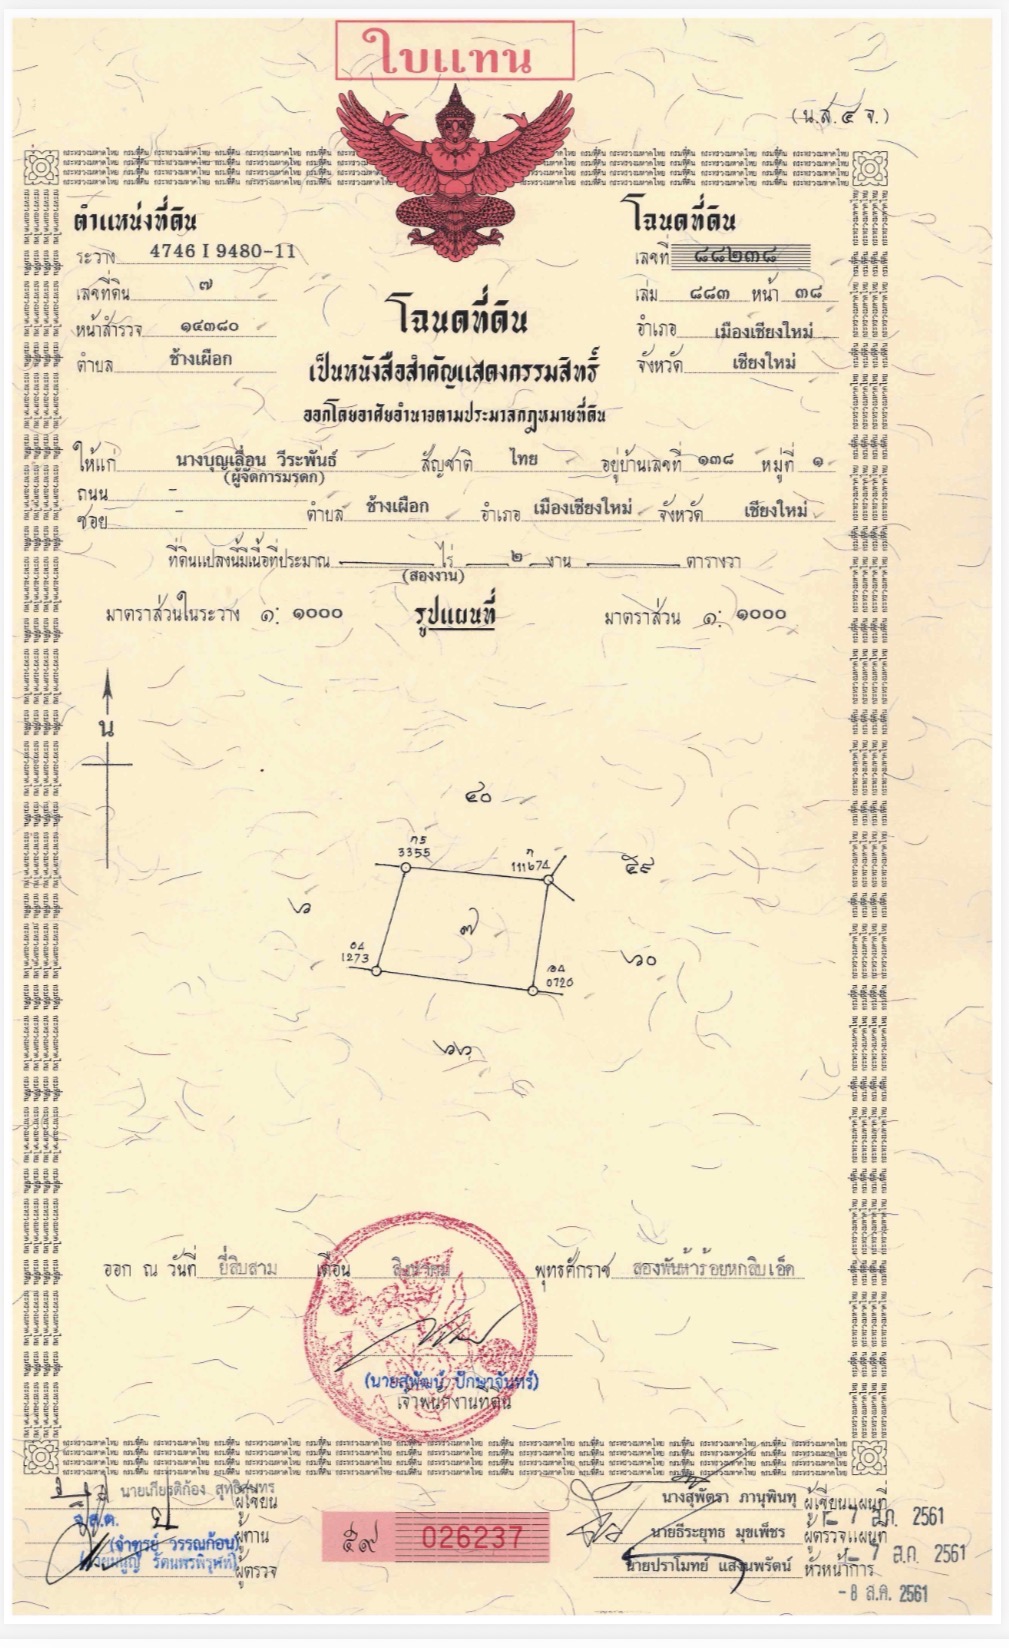 ใบแทน
(น.ส.๔ จ.)
ตำแหน่งที่ดิน
ระวาง 4746 I 9480-11
เลขที่ดิน ๗
หน้าสำรวจ ๑๔๓๘๐
ตำบล ช้างเผือก
โฉนดที่ดิน
เลขที่ ๘๘๒๓๘
เล่ม ๘๘๓ หน้า ๓๘
อำเภอ เมืองเชียงใหม่
จังหวัด เชียงใหม่
โฉนดที่ดิน
เป็นหนังสือสำคัญแสดงกรรมสิทธิ์
ออกโดยอาศัยอำนาจตามประมวลกฎหมายที่ดิน
ให้แก่ นางบุญเลื่อน วีระพันธ์ สัญชาติ ไทย อยู่บ้านเลขที่ ๑๓๘ หมู่ที่ ๑
(ผู้จัดการมรดก)
ถนน -
ซอย - ตำบล ช้างเผือก อำเภอ เมืองเชียงใหม่ จังหวัด เชียงใหม่
ที่ดินแปลงนี้มีเนื้อที่ประมาณ ไร่ ๒ งาน ตารางวา
(สองงาน)
มาตราส่วนในระวาง ๑: ๑๐๐๐ รูปแผนที่ มาตราส่วน ๑: ๑๐๐๐
น
๔๐
3355
111674
๕๙
๖
๗
1273
๖๐
0720
๖๖
ออก ณ วันที่ ยี่สิบสาม เดือน สิงหาคม พุทธศักราช สองพันห้าร้อยหกสิบเอ็ด
(นายสุพัฒน์ ปักษาจันทร์)
เจ้าพนักงานที่ดิน
ผู้เขียน
จ.ส.ต.
ผู้ทาน
ผู้ตรวจ
๕๙ 026237
นางสุพัตรา ภานุพินทุ ผู้เขียนแผนที่
- 7 ส.ค. 2561
นายธีระยุทธ มุขเพ็ชร ผู้ตรวจแผนที่
- 7 ส.ค. 2561
นายปราโมทย์ แสงนพรัตน์ หัวหน้าการ
- 8 ส.ค. 2561